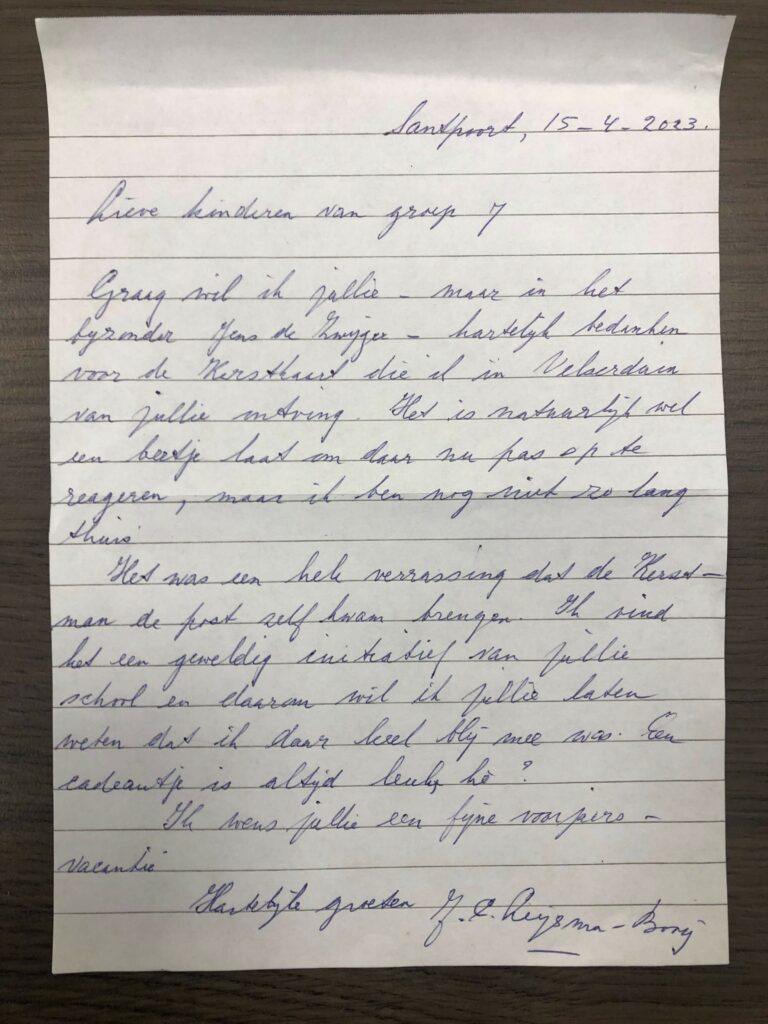 Santpoort, 15-4-2023.
Lieve kinderen van groep 7
Graag wil ik jullie – maar in het
byzonder Jens de Zwijger – hartelijk bedanken
voor de Kerstkaart die ik in Velserduin
van jullie ontving. Het is natuurlijk wel
een beetje laat om daar nu pas op te
reageren, maar ik ben nog niet zo lang
thuis.
Het was een hele verrassing dat de Kerst-
man de post zelf kwam brengen. Ik vind
het een geweldig initiatief van jullie
school en daarom wil ik jullie laten
weten dat ik daar heel blij mee was. Een
cadeautje is altijd leuk, hè?
Ik wens jullie een fijne voorjaars-
vacantie
Hartelijke groeten J. C.